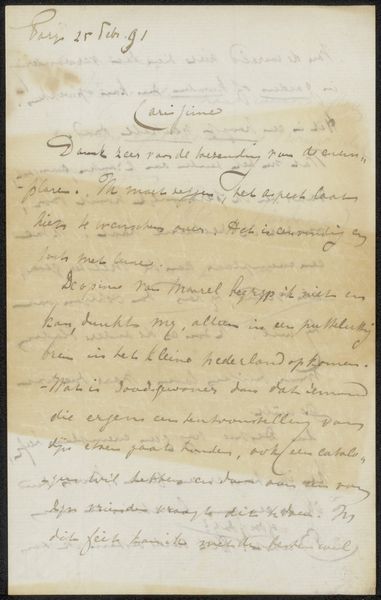 Parijs 25 Feb. 91
Carissime
Dank zeer voor de toezending van de exem-
plaren. Ik moet zeggen het aspect laat
niets te wenschen over. Het is eenvoudig en
toch met luxe.
De opinie van Marcel begrijp ik niet en
kan, dunkt mij, alleen in een
brein in het kleine nederland opkomen.
Wat is doodgewoner dan dat iemand
die ergens een tentoonstelling van
zijn etsen gaat houden, ook een catalo-
gus wil hebben en dan aan een van
zijn vrienden vraagt dit te doen. In
dit feit kan ik met de beste wil